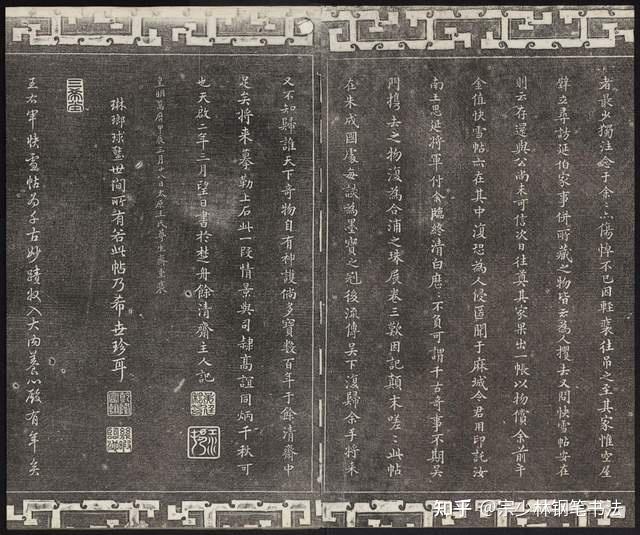 者最少獨注念于余:亦傷悼不已因輕裝往吊之至其家惟空屋
壁立尋訪延伯家事併所藏之物皆云為人攫去又問快雪帖安在
則云存還與公尚未可信次日往奠其家果出一帳以物償余前千
金值快雪帖亦在其中復恐為人侵匿聞于麻城令君用印託汝
南王思延將軍付余臨終清白歷:不負可謂千古奇事不期吳
門攜去之物復為合浦之珠展卷三歎因記顛末嗟:此帖
在朱成國處每談為墨寶之冠後流傳吳下復歸余手將來
又不知歸誰天下奇物自有神護倘多寶數百年于餘清齋中
足矣將來摹勒上石此一段情景與司隷高誼同炳千秋可
也天啟二年三月望日書於楚舟餘清齋主人記
皇明萬曆甲辰二月十八日太原王氏尊生齋重裝
琳瑯球璧世間所有若此帖乃希世珍耳
三希堂
王右軍快雪帖為千古妙蹟收入大內養心殿有年矣
知乎 @宗少林钢笔书法